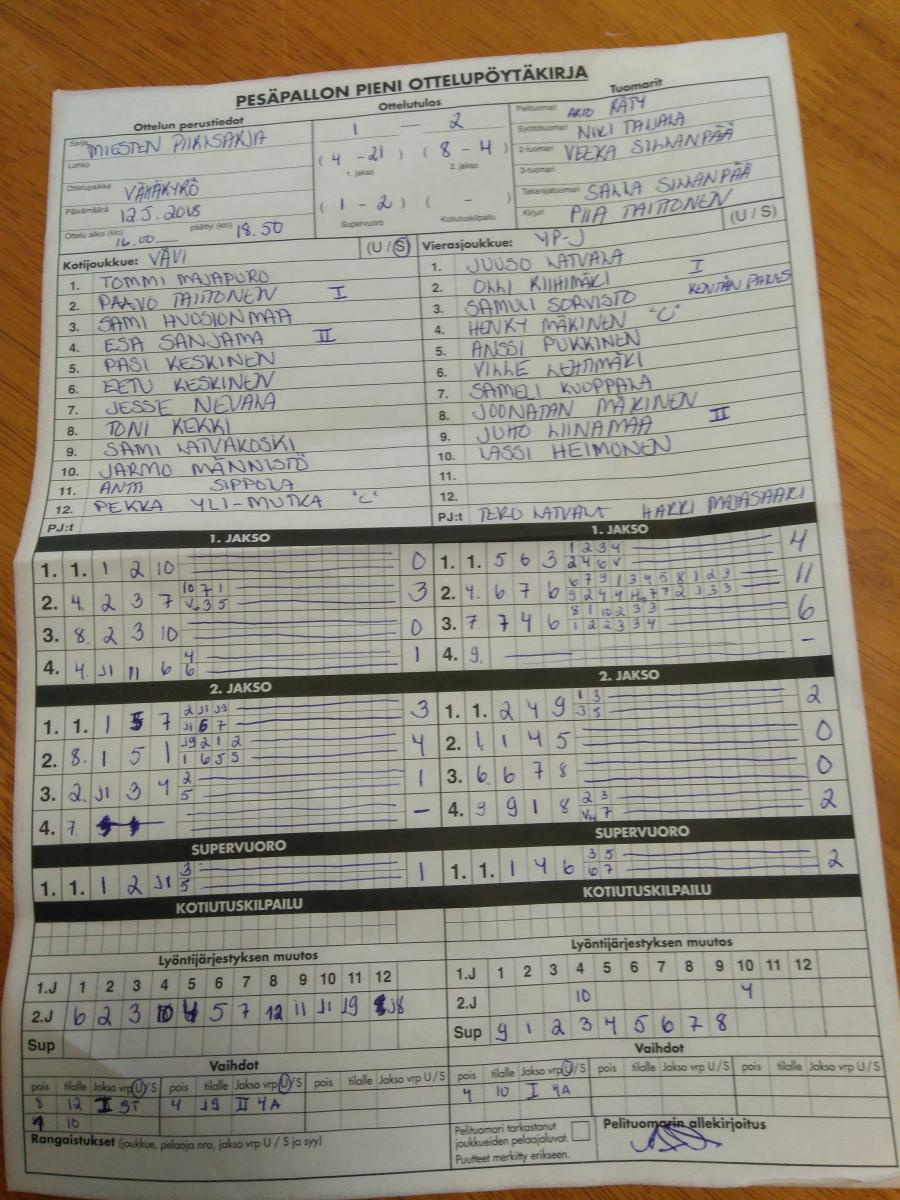 PESÄPALLON PIENI OTTELUPÖYTÄKIRJA
Ottelun perustiedot
Sarja MIESTEN PIIRISARJA
Lohko
Ottelupaikka VÄHÄKYRÖ
Päivämäärä 12.5.2018
Ottelu alkoi (klo) 16.00 päättyi (klo) 18.50
Ottelutulos
1 — 2
( 4 - 21 ) ( 8 - 4 )
1. jakso 2. jakso
( 1 - 2 ) ( - )
Supervuoro Kotiutuskilpailu
Tuomarit
Pelituomari ARTO RÄTY
Syöttötuomari NIKI TALJALA
2-tuomari VEERA SILLANPÄÄ
3-tuomari
Takarajatuomari SALLA SILLANPÄÄ
Kirjuri PIIA TAITTONEN
Kotijoukkue: VÄVI (U / S)
1. TOMMI MAJAPURO
2. PAAVO TAITTONEN I
3. SAMI HUOSIONMAA
4. ESA SANJAMA II
5. PASI KESKINEN
6. EETU KESKINEN
7. JESSE NEVALA
8. TONI KEKKI
9. SAMI LATVAKOSKI
10. JARMO MÄNNISTÖ
11. ANTTI SIPPOLA
12. PEKKA YLI-MUTKA "C"
PJ:t
Vierasjoukkue: YP-J (U / S)
1. JUUSO LATVALA
2. OLLI KIIHIMÄKI I
3. SAMULI SORVISTO KENTÄN PARAS
4. HENKY MÄKINEN "C"
5. ANSSI PUKKINEN
6. VILLE LEHTIMÄKI
7. SAMELI KUOPPALA
8. JOONATAN MÄKINEN
9. JUHO LIINAMAA II
10. LASSI HEIMONEN
11.
12.
PJ:t TERO LATVALA HARRI MAJASAARI
1. JAKSO
1. 1. 1 2 10 0
2. 4. 2 3 7 10 7 1 3
V 3 5
3. 8. 2 3 10 0
4. 4. J1 11 6 4 1
6
1. JAKSO
1. 1. 5 6 3 1 2 3 4 4
2 4 6 V
2. 4. 6 7 6 6 7 9 1 3 4 5 8 1 2 3 11
3. 7. 7 4 6 8 1 10 2 3 3 6
1 2 2 3 3 4
4. 9. -
2. JAKSO
1. 1. 1 5 7 2 J1 J9 3
J1 6 7
2. 8. 1 5 1 J9 2 1 2 4
1 6 5 5
3. 2. J1 3 4 2 1
5
4. 7. -
2. JAKSO
1. 1. 2 4 9 1 3 2
3 5
2. 1. 1 4 5 0
3. 6. 6 7 8 0
4. 9 9 1 8 2 3 2
SUPERVUORO
1. 1. 1 2 J1 3 1
5
SUPERVUORO
1. 1. 1 4 6 3 5 2
6 7
KOTIUTUSKILPAILU
KOTIUTUSKILPAILU
Lyöntijärjestyksen muutos
1.J 1 2 3 4 5 6 7 8 9 10 11 12
2.J 6 2 3 10 4 5 7 12 11 J1 J9 J8
Sup
Lyöntijärjestyksen muutos
1.J 1 2 3 4 5 6 7 8 9 10 11 12
2.J 10 4
Sup 9 1 2 3 4 5 6 7 8
Vaihdot
pois tilalle Jakso vrp U / S pois tilalle Jakso vrp U / S pois tilalle Jakso vrp U / S
8 12 I 3T 4 J9 II 4A
10
Vaihdot
pois tilalle Jakso vrp U / S pois tilalle Jakso vrp U / S pois tilalle Jakso vrp U / S
4 10 I 4A
Rangaistukset (joukkue, pelaaja nro, jakso vrp U / S ja syy)
Pelituomari tarkastanut
joukkueiden pelaajaluvat.
Puutteet merkitty erikseen.
Pelituomarin allekirjoitus